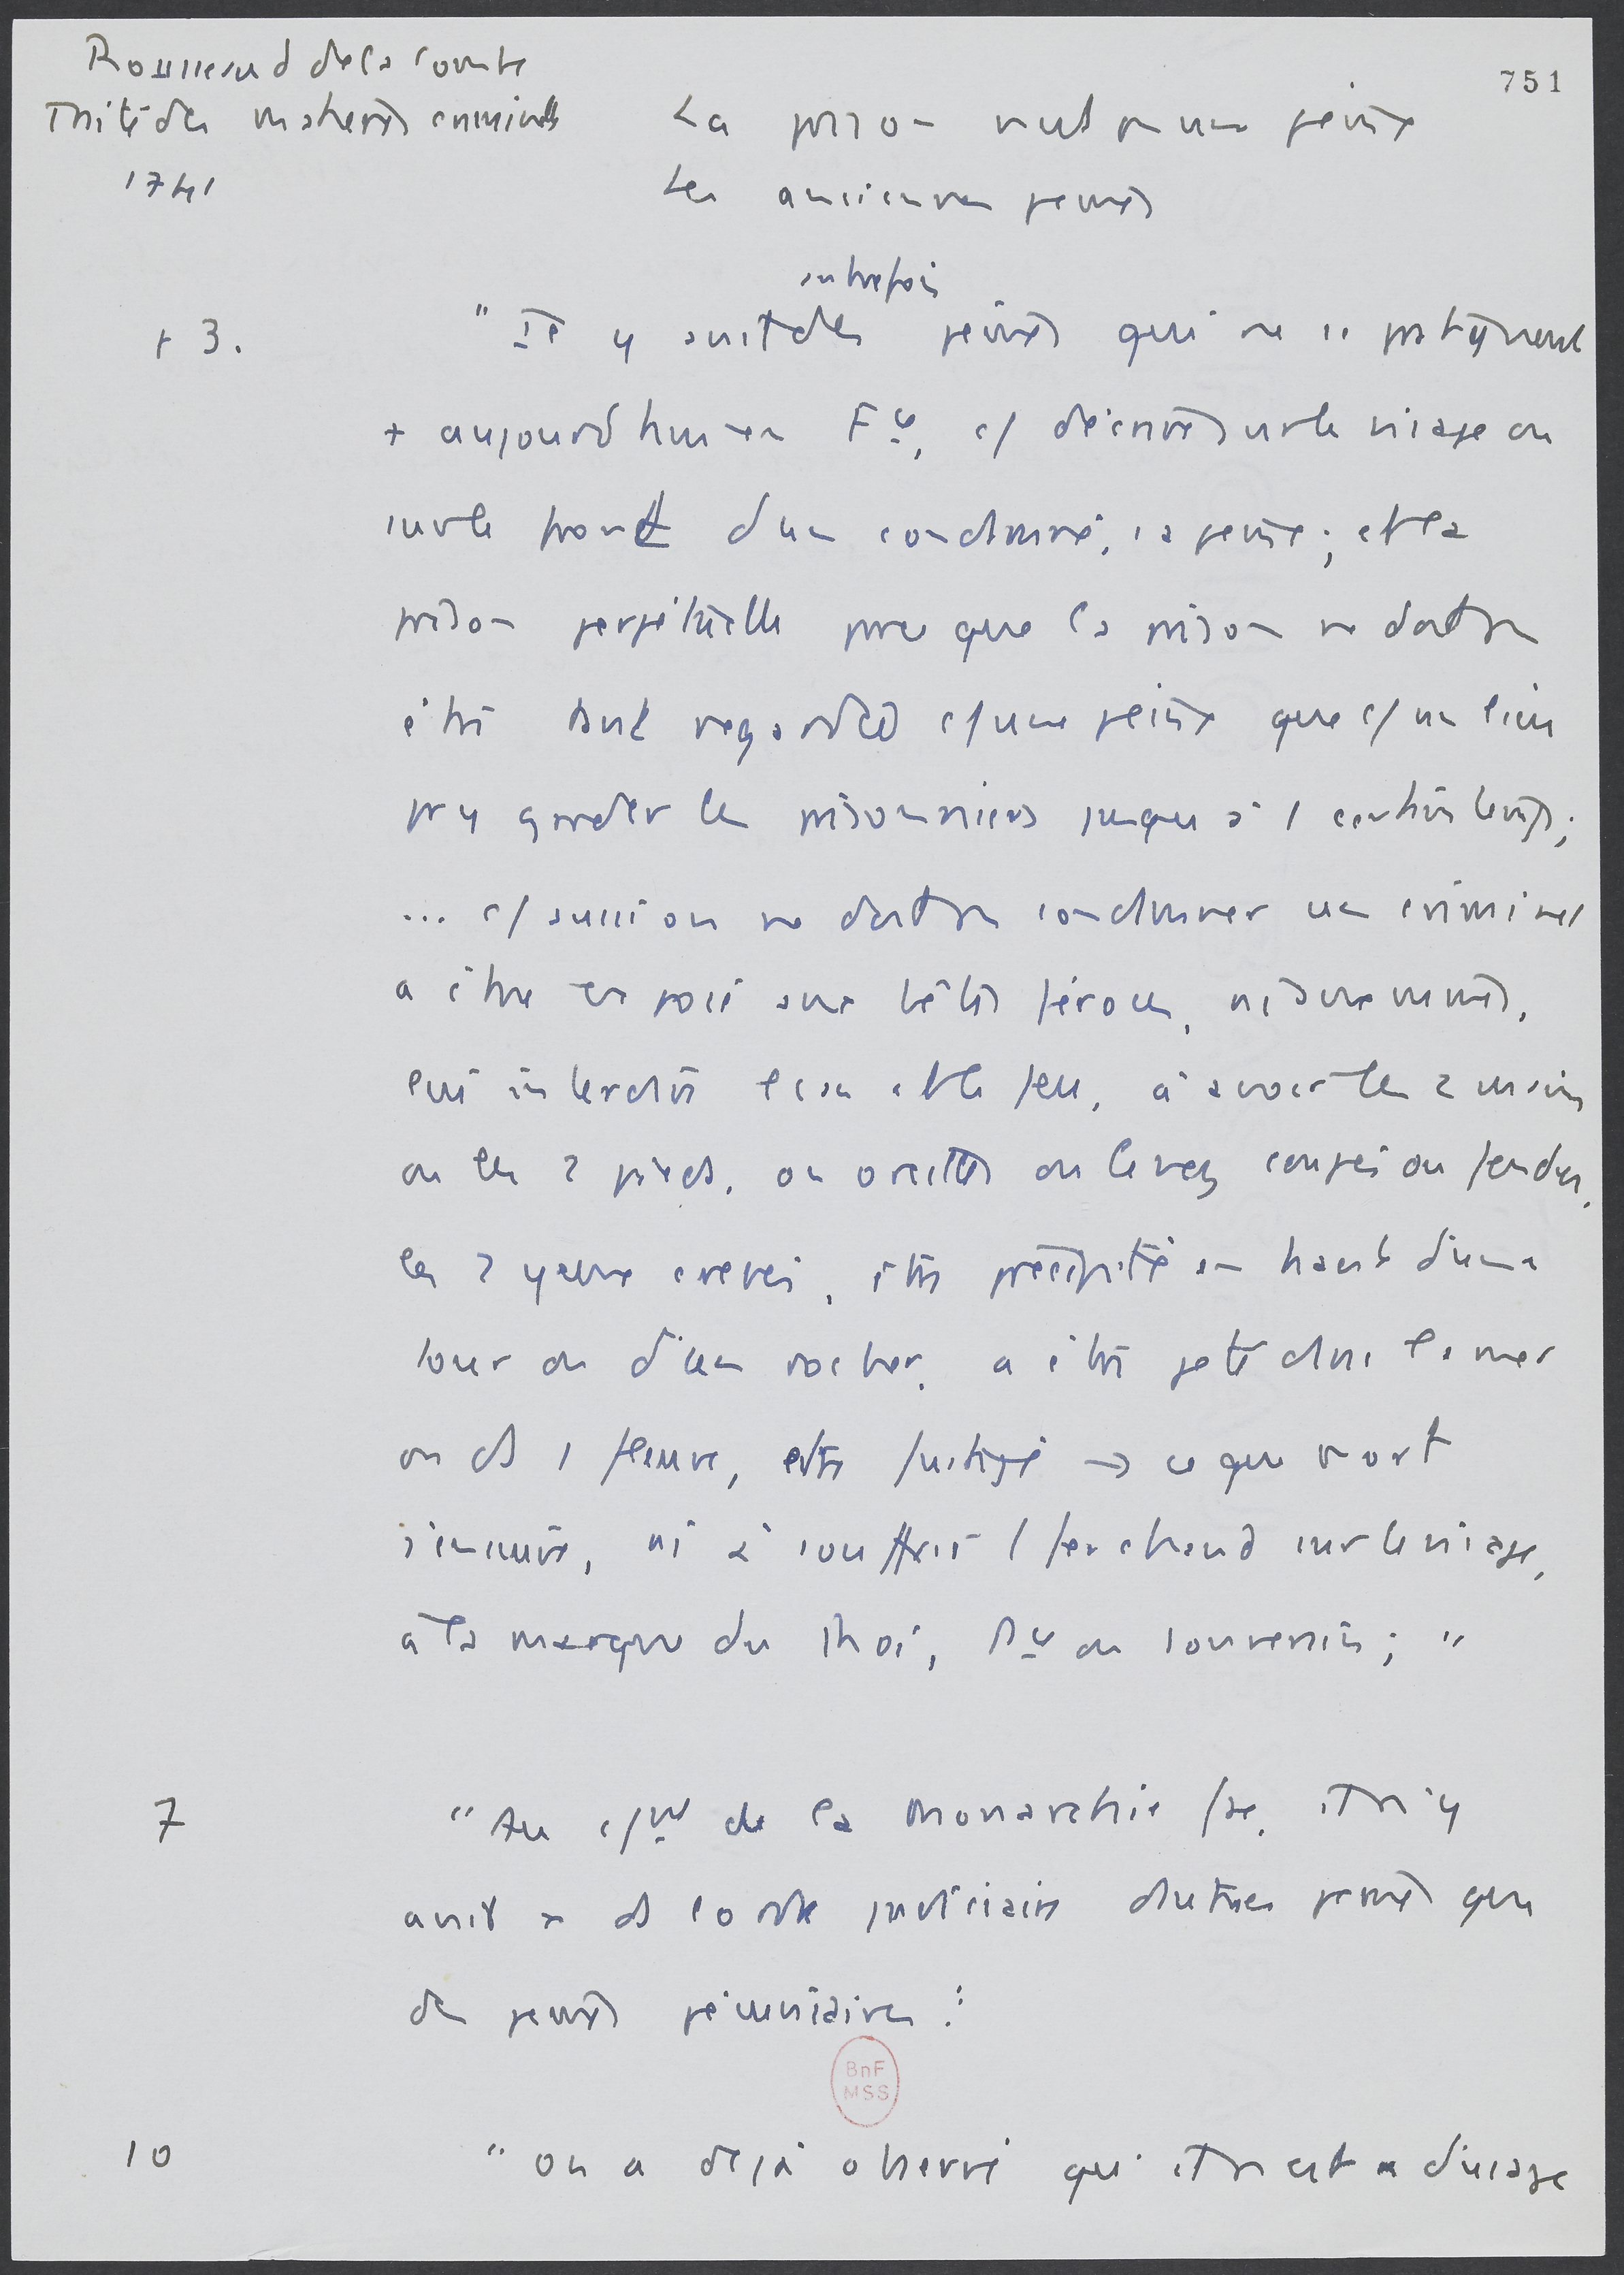 Rousseaud de la Combe
Traité des matières criminelles
1741
751
La prison n'est pas une peine
Les anciennes peines
+ 3.
autrefois
"Il y avait des peines qui ne se pratiquent
+ aujourd'hui en Fce, c/ d'écrire sur le visage ou
sur le front d'un condamné, sa peine ; et la
prison perpétuelle parce que la prison ne doit pas
être tant regardée c/ une peine que c/ un lieu
pr y garder les prisonniers jusqu'à 1 certain temps ;
... c/ aussi on ne doit pas condamner un criminel
a être exposé aux bêtes féroces, ni aux mines,
lui interdire l'eau et le feu, à avoir les 2 mains
ou les 2 pieds, ou oreilles ou le nez coupés ou fendus,
les 2 yeux crevés, être précipité en haut d'une
tour ou d'un rocher, a être jeté dans la mer
ou ds 1 fleuve, être fustigé → ce que mort
s'ensuive, ni à souffrir l fer chaud sur le visage,
à la marque du Roi, Pce ou souverain ; "
7
"Au c/nt de la Monarchie fse, il n'y
avait pas ds l'ordre judiciaire d'autres peines que
des peines pécuniaires :
BnF
MSS
10
"on a déjà observé qu'il n'est pas d'usage